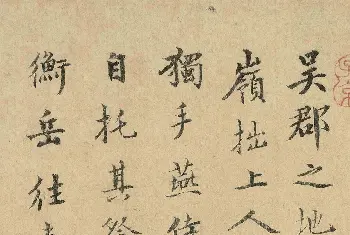 吴郡之地
嶺拙上人
獨手燕
自托其
衡岳往